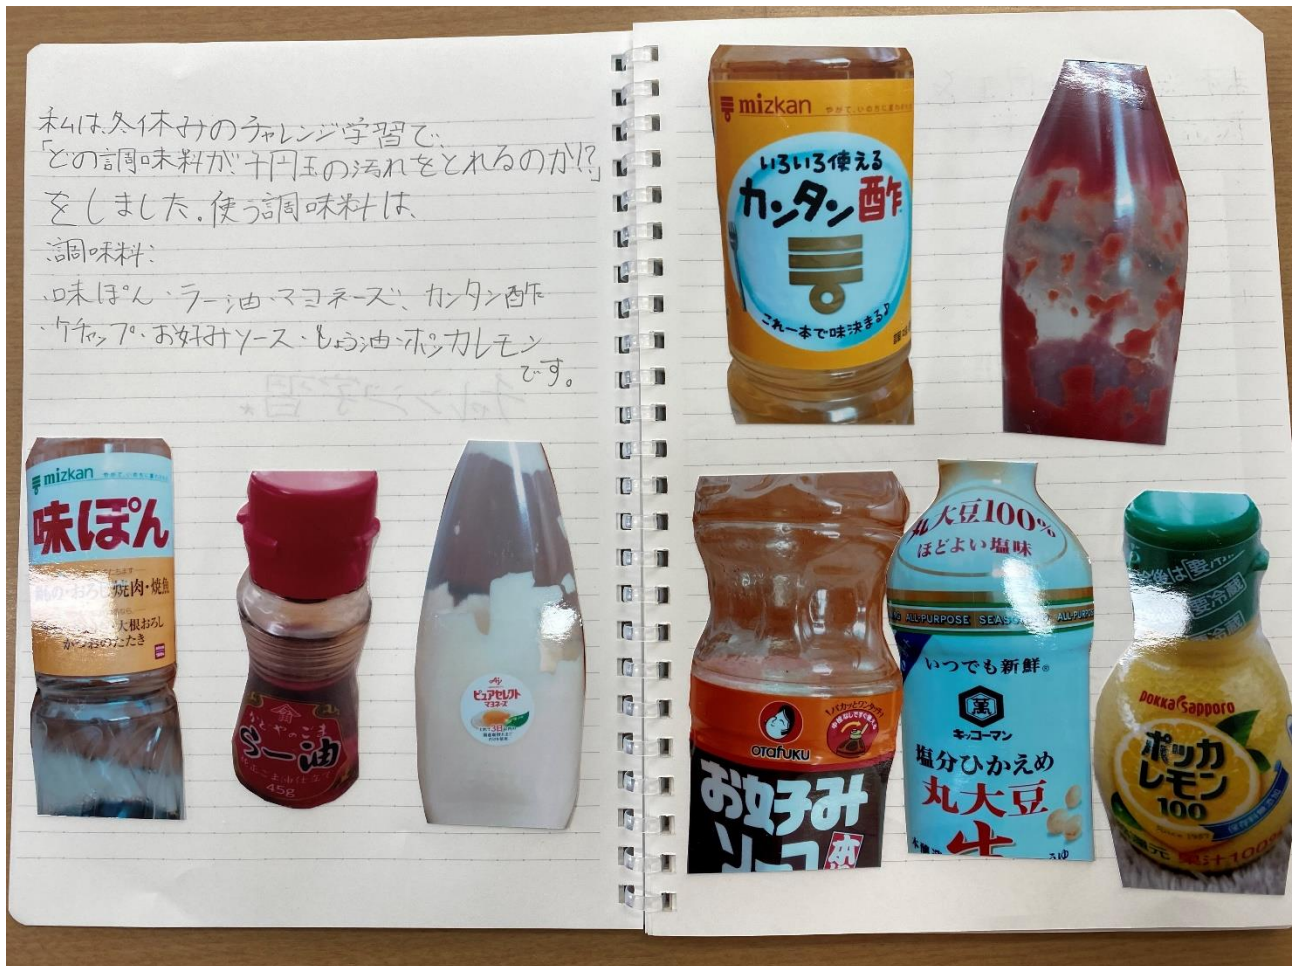 私は冬休みのチャレンジ学習で、
「どの調味料が、十円玉の汚れをとれるのか!?」
をしました。使う調味料は、
調味料:
・味ぽん・ラー油・マヨネーズ、カンタン酢
・ケチャップ・お好みソース・しょう油・ポッカレモン
です。
mizkan
味ぽん
焼肉・焼魚
大根おろし
かつおのたたき
ラー油
45g
ピュアセレクト
マヨネーズ
mizkan
やがて、いのちに変わるもの
いろいろ使える
カンタン酢
これ一本で味決まる♪
OTAFUKU
お好み
ソース
丸大豆100%
ほどよい塩味
ALL-PURPOSE SEASO
ALL-PURPO
いつでも新鮮®
萬
キッコーマン
塩分ひかえめ
丸大豆
生
要冷蔵
POKKA Sapporo
ポッカ
レモン
100
Since 1957
果汁100%